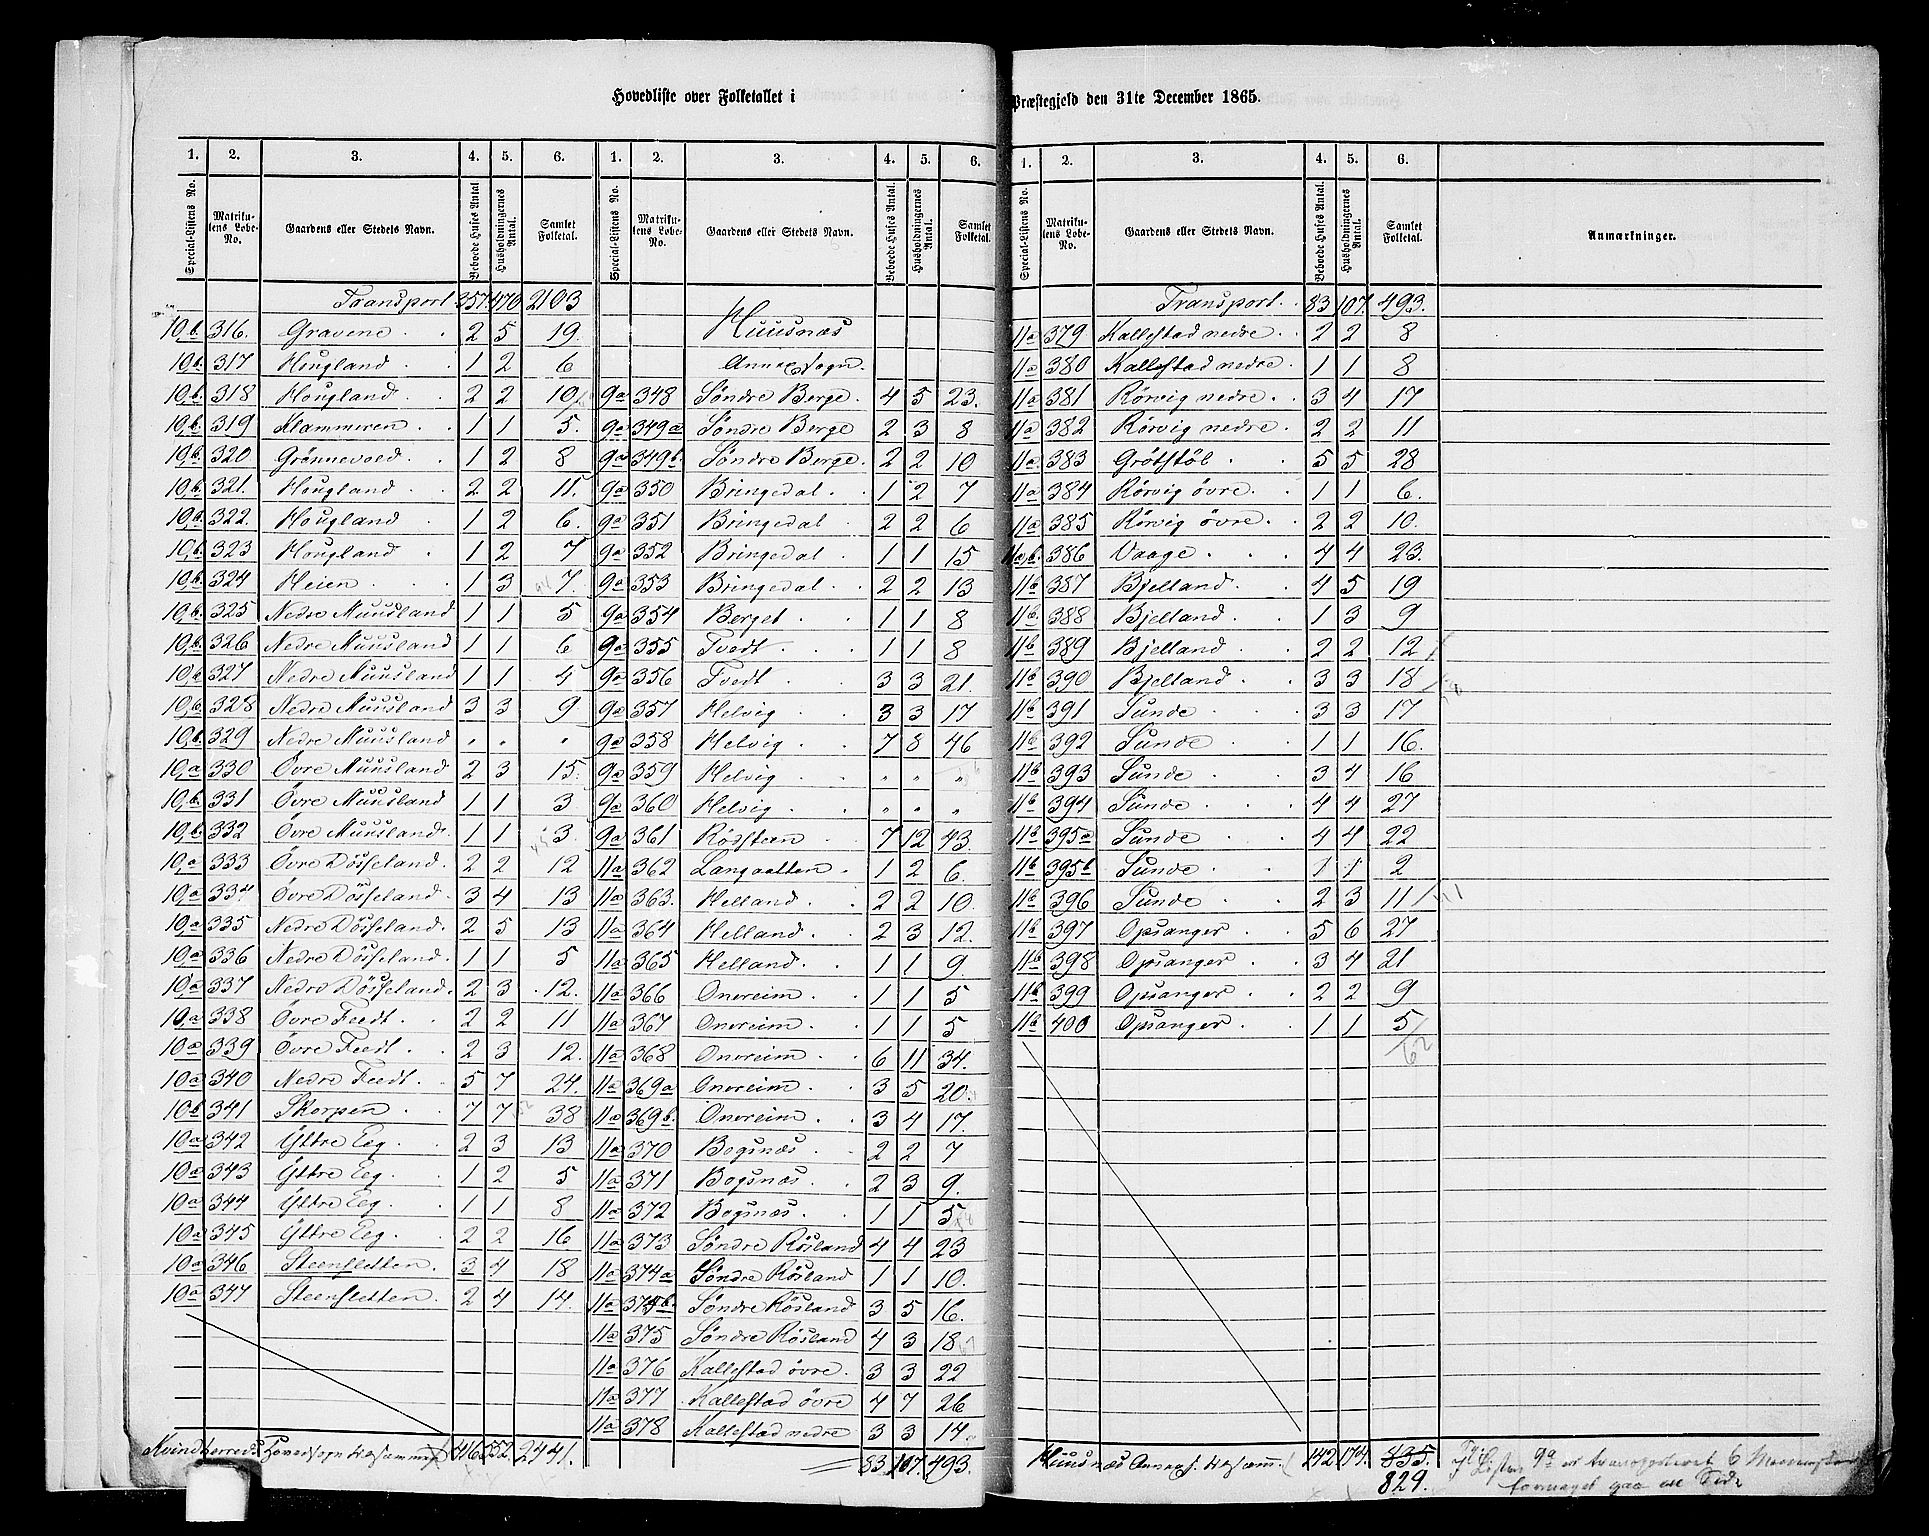 Hovedliste over Folketallet i Præstegjeld den 31te December 1865.
1. 2. 3. 4. 5. 6. 1. 2. 3. 4. 5. 6.
Special-Listens No. Matrikulens Løbe-No. Gaardens eller Stedets Navn. Beboede Huses Antal. Husholdningernes Antal. Samlet Folketal. Special-Listens No. Matrikulens Løbe-No. Gaardens eller Stedets Navn. Beboede Huses Antal. Husholdningernes Antal. Samlet Folketal.
Transport 357 470 2103
10b 316. Gravene 2 5 19.
10b 317 Hougland 1 2 6
10b 318 Hougland 2 2 10
10b 319 Klammeren 1 1 5.
10b 320 Grønnevold 1 2 8
10b 321. Hougland 2 2 11.
10a 322. Hougland 1 2 6.
10b 323 Hougland 1 2 7
10b 324 Heien 1 3 7.
10b 325 Nedre Muusland 1 1 5
10b 326 Nedre Muusland 1 1 6
10b 327 Nedre Muusland 1 1 4
10b 328 Nedre Muusland 3 3 9
10b 329 Nedre Muusland " " "
10a 330 Øvre Muusland 2 3 15.
10b 331 Øvre Muusland 1 1 3
10b 332 Øvre Muusland 1 1 3.
10a 333 Øvre Døsseland 2 2 12
10a 334 Øvre Døsseland 3 4 13
10a 335 Nedre Døsseland 2 5 13
10a 336 Nedre Døsseland 1 1 5
10a 337 Nedre Døsseland 2 3 12.
10a 338 Øvre Feedt 2 2 11
10a 339 Øvre Feedt 2 3 12.
10a 340 Nedre Feedt 5 7 24.
10b 341 Skorpen 7 7 38
10a 342 Yttre Eeg 2 3 13
10a 343 Yttre Eeg 1 2 5
10a 344 Yttre Eeg 1 1 8
10a 345 Yttre Eeg 2 2 16
10a 346 Steensletten 3 4 18
10a 347 Steensletten 2 4 14.
Kvindherreds Hovedsogn tilsammen 416 552. 2441.
Huusnæs
Annex Sogn.
9a 348 Søndre Berge 4 5 23.
9a 349a Søndre Berge 2 3 8
9a 349b. Søndre Berge 2 2 10
9a 350 Bringedal 1 2 7
9a 351 Bringedal 2 2 6
9a 352 Bringedal 1 1 15
9a 353 Bringedal 2 2 13
9a 354 Berget 1 1 8
9a 355 Tvedt 1 1 8
9a 356 Tvedt 3 3 21.
9a 357 Helvig 3 3 17
9a 358 Helvig 7 8 46
9a 359 Helvig " " "
9a 360 Helvig " " "
9a 361 Rødsteen 7 12 43.
11a 362 Langaatten 1 2 6.
11a 363. Helland 2 2 10.
11a 364 Helland 2 3 12.
11a 365 Helland 1 1 9
11a 366 Onereim 1 1 5
11a 367 Onereim 1 1 5
11a 368 Onereim 6 11 34.
11a 369a Onereim 3 5 20.
11a 369b. Onereim 3 4 17.
11a 370 Bogsnæs 2 2 7
11a 371 Bogsnæs 2 3 9.
11a 372 Bogsnæs 1 1 5
11a 373 Søndre Røsland 4 4 23
11a 374a Søndre Røsland 1 1 10.
11a 374b. Søndre Røsland 3 5 16.
11a 375 Søndre Røsland 4 3 18
11a 376 Kallestad øvre 3 3 22
11a 377 Kallestad øvre 4 7 26
11a 378 Kallestad nedre 3 3 14.
83. 107. 493.
1. 2. 3. 4. 5. 6.
Special-Listens No. Matrikulens Løbe-No. Gaardens eller Stedets Navn. Beboede Huses Antal. Husholdningernes Antal. Samlet Folketal. Anmærkninger.
Transport. 83 107. 493.
11a 379 Kallestad nedre 2 2 8
11a 380 Kallestad nedre 1 1 8
11a 381 Rørvig nedre 3 4 17
11a 382 Rørvig nedre 2 2 11
11a 383 Grøtstøl 5 5 28
11a 384 Rørvig øvre 1 1 6.
11a 385 Rørvig øvre 2 2 10.
11a,b. 386 Vaage 4 4 23.
11b 387 Bjelland 4 5 19
11b. 388 Bjelland 1 3 9
11b 389 Bjelland 2 2 12
11b 390 Bjelland 3 3 18
11b 391 Sunde 3 3 17
11b 392 Sunde 1 1 16.
11b 393 Sunde 3 4 16
11b 394 Sunde 4 4 27
11b 395a Sunde 4 4 22
11b 395b Sunde 1 1 2
11b 396 Sunde 2 3 11
11b 397 Opsanger 5 6 27
11b 398 Opsanger 3 4 21
11b 399 Opsanger 2 2 9
11b 400 Opsanger 1 1 5
62
Huusnæs Annex S. tilsamm. 142 174. 835.
829.
I Listen 9a er transporteret 6
formeget paa en Side